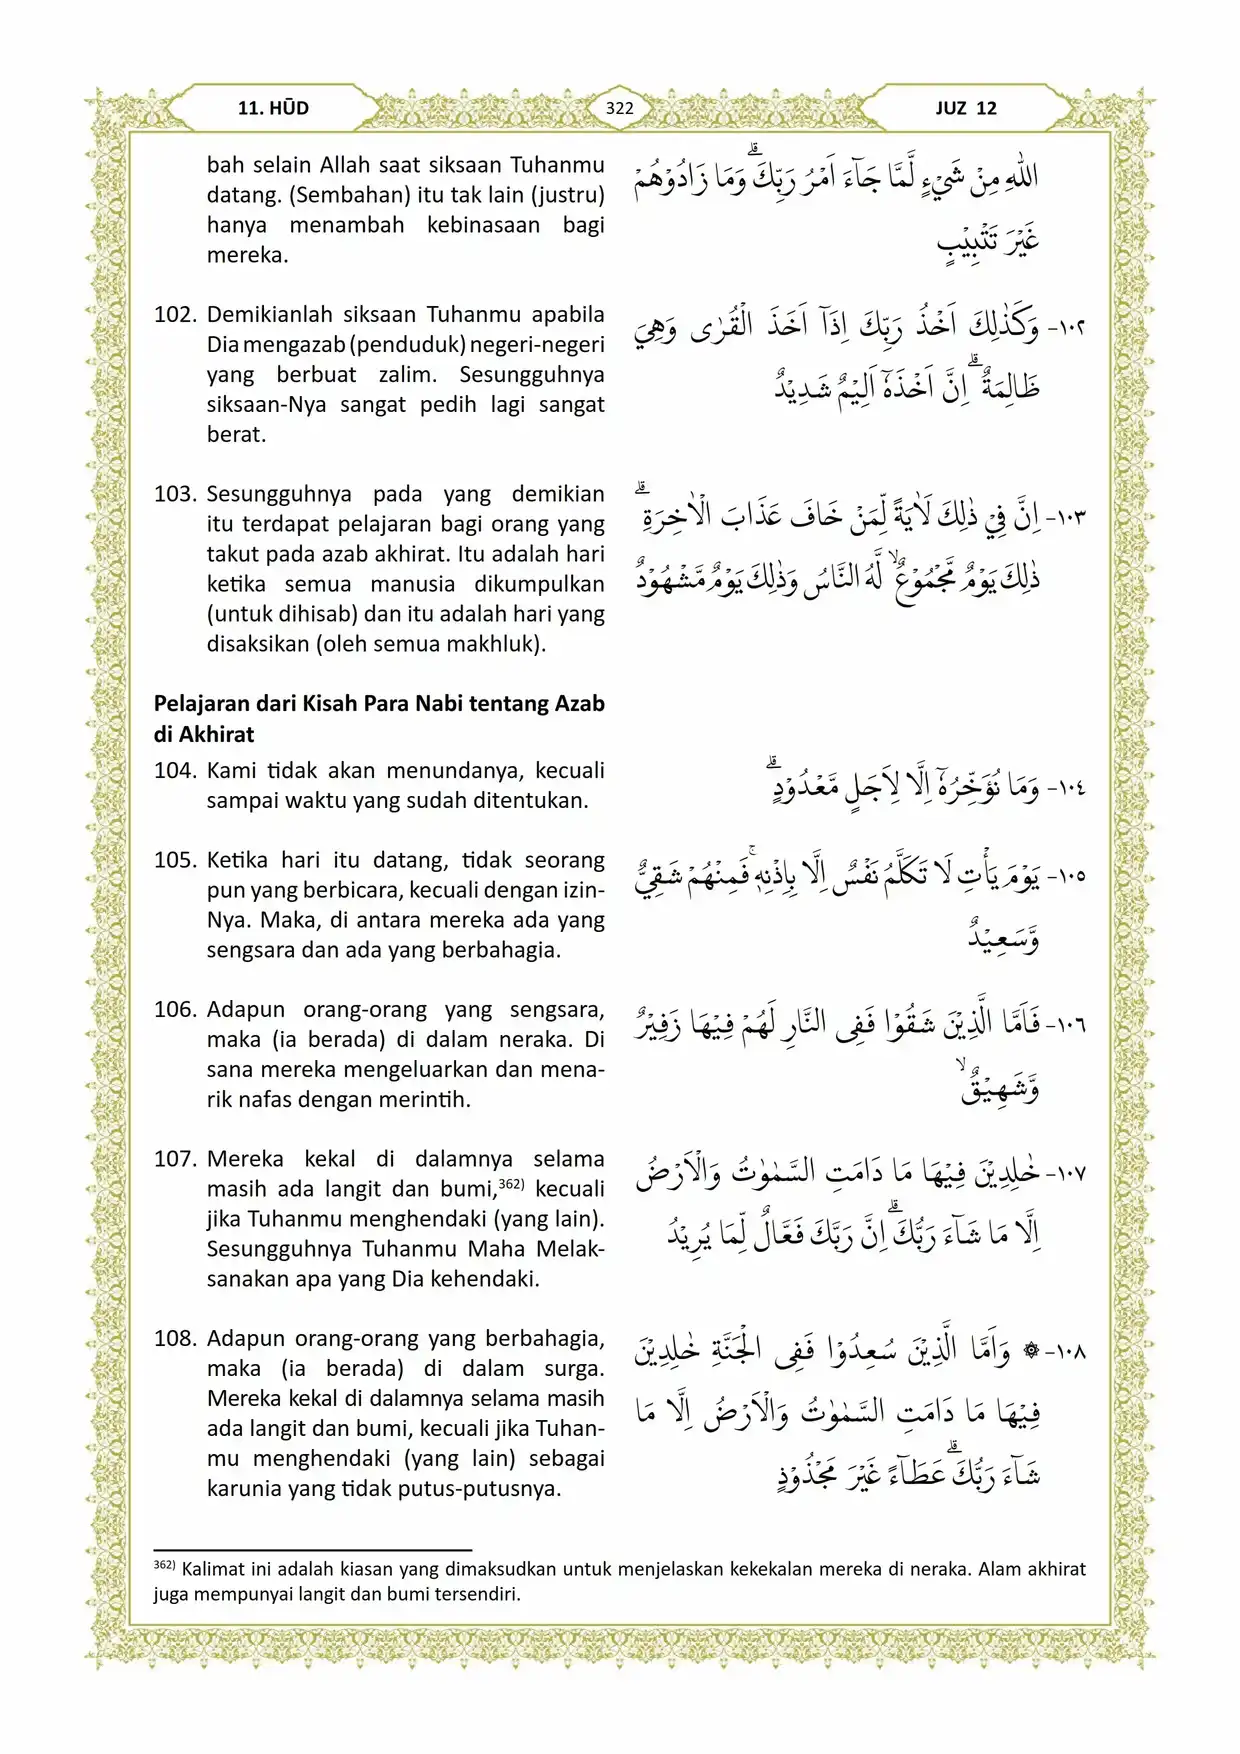 11. HŪD
322
JUZ 12
bah selain Allah saat siksaan Tuhanmu
datang. (Sembahan) itu tak lain (justru)
hanya menambah kebinasaan bagi
mereka.
اللّٰهِ مِنْ شَيْءٍ لَّمَّا جَاۤءَ اَمْرُ رَبِّكَۗ وَمَا زَادُوْهُمْ
غَيْرَ تَتْبِيْبٍ
102. Demikianlah siksaan Tuhanmu apabila
Dia mengazab (penduduk) negeri-negeri
yang berbuat zalim. Sesungguhnya
siksaan-Nya sangat pedih lagi sangat
berat.
١٠٢- وَكَذٰلِكَ اَخْذُ رَبِّكَ اِذَآ اَخَذَ الْقُرٰى وَهِيَ
ظَالِمَةٌ ۗاِنَّ اَخْذَهٗٓ اَلِيْمٌ شَدِيْدٌ
103. Sesungguhnya pada yang demikian
itu terdapat pelajaran bagi orang yang
takut pada azab akhirat. Itu adalah hari
ketika semua manusia dikumpulkan
(untuk dihisab) dan itu adalah hari yang
disaksikan (oleh semua makhluk).
١٠٣- اِنَّ فِيْ ذٰلِكَ لَاٰيَةً لِّمَنْ خَافَ عَذَابَ الْاٰخِرَةِ ۗ
ذٰلِكَ يَوْمٌ مَّجْمُوْعٌۙ لَّهُ النَّاسُ وَذٰلِكَ يَوْمٌ مَّشْهُوْدٌ
Pelajaran dari Kisah Para Nabi tentang Azab
di Akhirat
104. Kami tidak akan menundanya, kecuali
sampai waktu yang sudah ditentukan.
١٠٤- وَمَا نُؤَخِّرُهٗٓ اِلَّا لِاَجَلٍ مَّعْدُوْدٍۗ
105. Ketika hari itu datang, tidak seorang
pun yang berbicara, kecuali dengan izin-
Nya. Maka, di antara mereka ada yang
sengsara dan ada yang berbahagia.
١٠٥- يَوْمَ يَأْتِ لَا تَكَلَّمُ نَفْسٌ اِلَّا بِاِذْنِهٖۚ فَمِنْهُمْ شَقِيٌّ
وَّسَعِيْدٌ
106. Adapun orang-orang yang sengsara,
maka (ia berada) di dalam neraka. Di
sana mereka mengeluarkan dan mena-
rik nafas dengan merintih.
١٠٦- فَاَمَّا الَّذِيْنَ شَقُوْا فَفِى النَّارِ لَهُمْ فِيْهَا زَفِيْرٌ
وَّشَهِيْقٌۙ
107. Mereka kekal di dalamnya selama
masih ada langit dan bumi,362) kecuali
jika Tuhanmu menghendaki (yang lain).
Sesungguhnya Tuhanmu Maha Melak-
sanakan apa yang Dia kehendaki.
١٠٧- خٰلِدِيْنَ فِيْهَا مَا دَامَتِ السَّمٰوٰتُ وَالْاَرْضُ
اِلَّا مَا شَاۤءَ رَبُّكَۗ اِنَّ رَبَّكَ فَعَّالٌ لِّمَا يُرِيْدُ
108. Adapun orang-orang yang berbahagia,
maka (ia berada) di dalam surga.
Mereka kekal di dalamnya selama masih
ada langit dan bumi, kecuali jika Tuhan-
mu menghendaki (yang lain) sebagai
karunia yang tidak putus-putusnya.
١٠٨- ۞ وَاَمَّا الَّذِيْنَ سُعِدُوْا فَفِى الْجَنَّةِ خٰلِدِيْنَ
فِيْهَا مَا دَامَتِ السَّمٰوٰتُ وَالْاَرْضُ اِلَّا مَا
شَاۤءَ رَبُّكَۗ عَطَاۤءً غَيْرَ مَجْذُوْذٍ
362) Kalimat ini adalah kiasan yang dimaksudkan untuk menjelaskan kekekalan mereka di neraka. Alam akhirat
juga mempunyai langit dan bumi tersendiri.